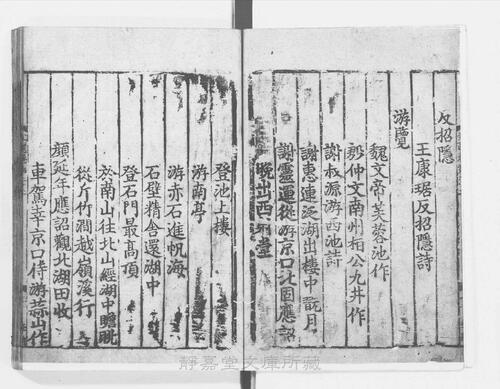 反招隱
王康琚反招隱詩
游覽
魏文帝芙蓉池作
殷仲文南州桓公九井作
謝叔源游西池詩
謝惠連泛湖出樓中翫月
謝靈運從游京口北固應詔
晚出西射堂
登池上樓
游南亭
游赤石進帆海
石壁精舍還湖中
登石門最高頂
於南山往北山經湖中瞻眺
從斤竹澗越嶺溪行
顔延年應詔觀北湖田收
車駕幸京口侍游蒜山作
靜嘉堂文庫所藏